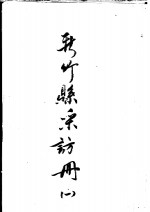 新竹縣采訪冊(一)